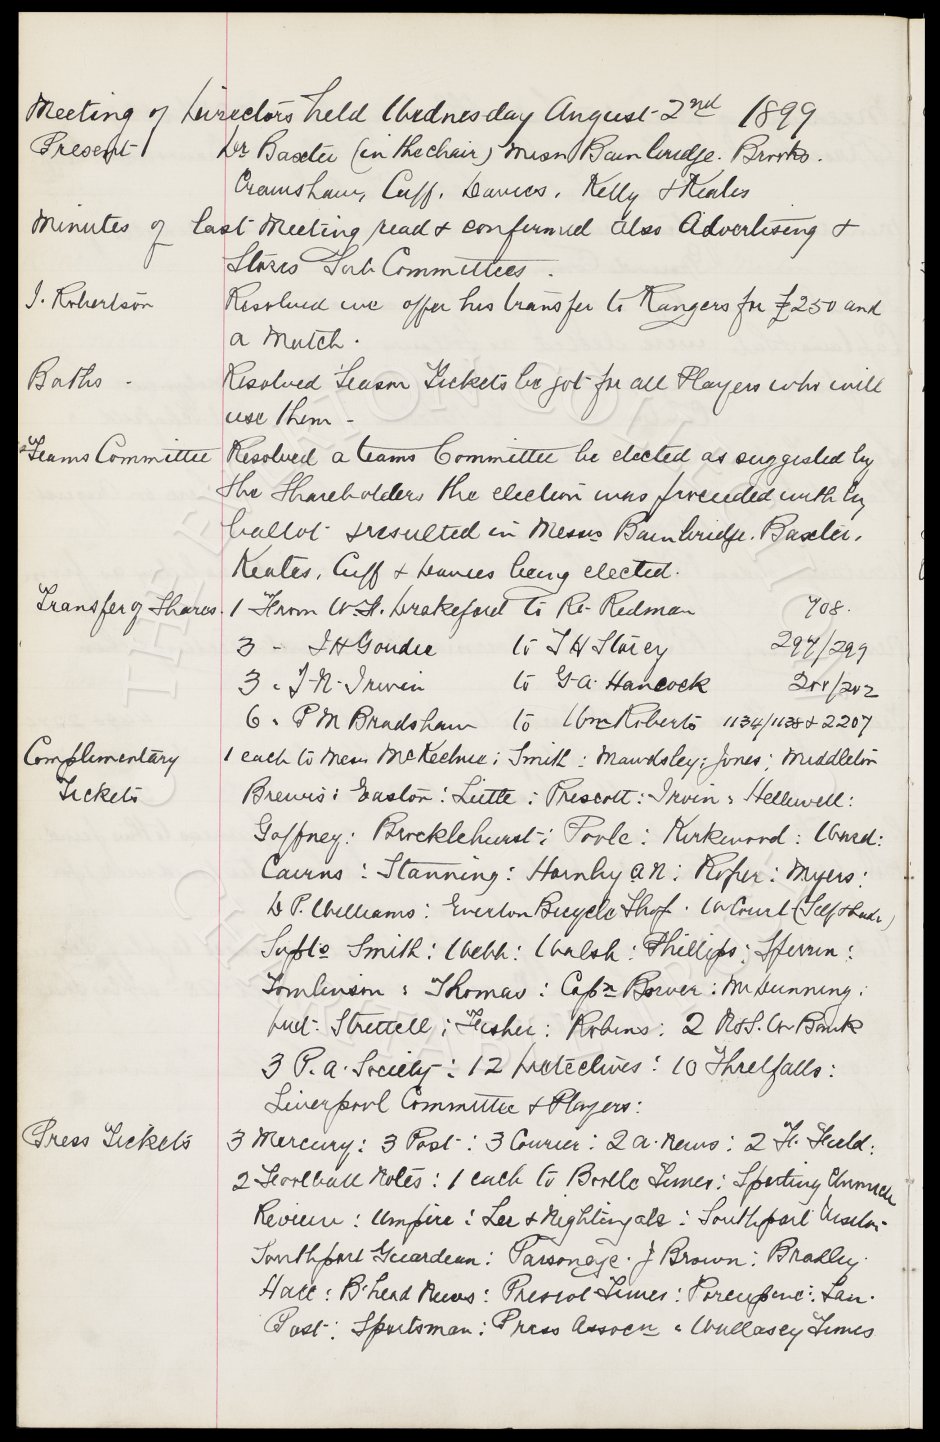 Meeting of Directors held Wednesday August 2nd 1899
Present Dr Baxter (in the chair) Messrs Bainbridge. Brooks.
Crawshaw, Cuff, Davies, Kelly & Keates
Minutes of last Meeting read & confirmed also Advertising &
Stores Sub Committees.
J. Robertson Resolved we offer his transfer to Rangers for £250 and
a Match.
Baths - Resolved Season Tickets be got for all Players who will
use them -
Teams Committee Resolved a teams Committee be elected as suggested by
the Shareholders the election was proceeded with by
ballot & resulted in Messrs Bainbridge. Baxter,
Keates, Cuff & Davies being elected.
Transfer of Shares. 1 From W. H. Drakeford to Rt Redman 708.
3 - J H Goudie to T H Storey 297/299
3 . J. N. Irwin to G. A. Hancock 200/202
6 . P M Bradshaw to Wm Roberts 1134/1138 & 2207
Complimentary 1 each to Messrs McKechnie : Smith : Mawdsley : Jones : Middleton
Tickets Brewis : Easton : Little : Prescott : Irvin : Helliwell :
Gaffney : Brocklehurst : Poole : Kirkwood : Ward :
Cairns : Stanning : Hornby A.N : Roper : Myers :
D P. Williams : Everton Bicycle Shop . W Court (Self & Lady)
Supts Smith : Webb : Walsh : Phillips : Sperrin :
Tomlinson : Thomas : Capn Bower : Mr Dunning :
Strettell : Fisher : Robins : 2 N & S. W Bank
3 P. A. Society : 12 Detectives : 10 Threlfalls :
Liverpool Committee & Players :
Press Tickets 3 Mercury : 3 Post : 3 Courier : 2 A. News : 2 F. Field :
2 Football Notes : 1 each to Bootle Times : Sporting Chronicle
Review : Umpire : Lee & Nightingale : Southport Visitor
Southport Guardian : Parsonage . J Brown : Bradley .
Hall : B'head News : Prescot Times : Porcupine : Lan.
Post : Sportsman : Press Assocn : Wallasey Times